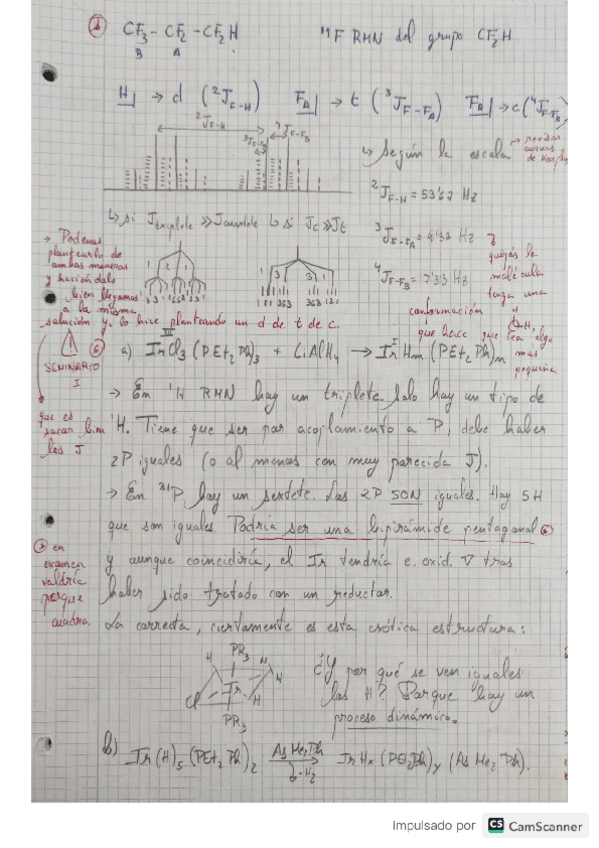 ① CF3 - CF2 - CF2H
B A
19F RMN del grupo CF2H
H → d (2JF-H) FA → t (3JF-FA) FB → c (4JF-FB)
2JF-H
3JF-FA
4JF-FB
↳ según la escala → revisar curvas de Karplus
2JF-H = 53'62 Hz
↳ si Jtriplete >> Jcuartete ↳ si Jc >> Jt
→ Podemos
plantearlo de
ambas maneras
y haciéndolo
bien llegamos
a la misma
solución. Yo lo hice planteando un d de t de c.
quizás la
molécula
tenga una
conformación
que hace que sea algo
mas
pequeña
SEMINARIO
I
⑥ a) IrCl3 (PEt2Ph)3 + LiAlH4 → IrHm (PEt2Ph)n
→ En 1H RMN hay un triplete. Solo hay un tipo de
que es
sacar bien
las J
1H. Tiene que ser por acoplamiento a P, debe haber
2P iguales (o al menos con muy parecida J).
→ En 31P hay un sextete. Las 2P SON iguales. Hay 5H
que son iguales. Podría ser una bipirámide pentagonal
en
examen
valdría
porque
cuadra
y aunque coincidiría, el Ir tendría e. oxid. V tras
haber sido tratado con un reductor.
La correcta, ciertamente es esta exótica estructura:
PR3
H H
H
Ir
H
PR3
¿Y por qué se ven iguales
las H? Porque hay un
proceso dinámico.
b) Ir(H)5 (PEt2Ph)2 AsMe2Ph → -H2 IrHx (PEt2Ph)y (AsMe2Ph).
Impulsado por CS CamScanner